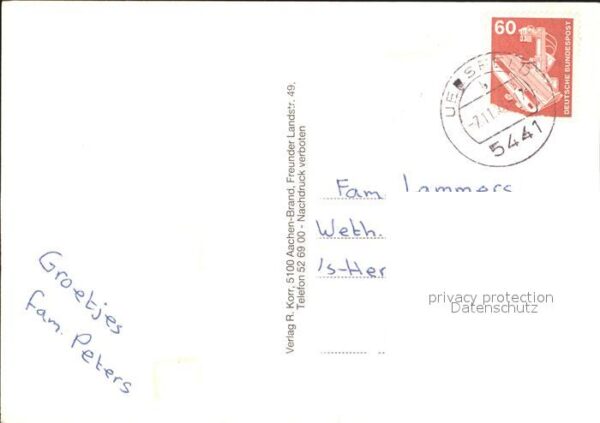 60
DEUTSCHE BUNDESPOST
5441
Verlag R. Korr, 5100 Aachen-Brand, Freunder Landstr. 49,
Telefon 52 69 00 - Nachdruck verboten
Fam. Lammers
Weth.
's-Her
privacy protection
Datenschutz
Groetjes
Fam. Peters